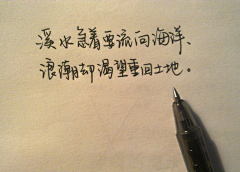 溪水急着要流向海洋、
浪潮却渴望重回土地。